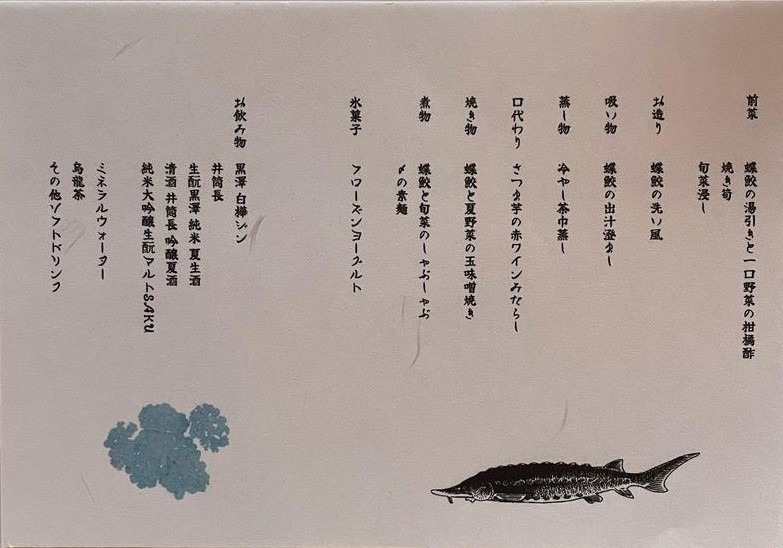 前菜 蝶鮫の湯引きと一口野菜の柑橘酢
焼き筍
旬菜浸し
お造り 蝶鮫の洗い風
吸い物 蝶鮫の出汁澄まし
蒸し物 冷やし茶巾蒸し
口代わり さつま芋の赤ワインみたらし
焼き物 蝶鮫と夏野菜の玉味噌焼き
煮物 蝶鮫と旬菜のしゃぶしゃぶ
〆の素麺
氷菓子 フローズンヨーグルト
お飲み物 黒澤 白樺ジン
井筒長
生酛黒澤 純米 夏生酒
清酒 井筒長 吟醸夏酒
純米大吟醸生酛マルトSAKU
ミネラルウォーター
烏龍茶
その他ソフトドリンク